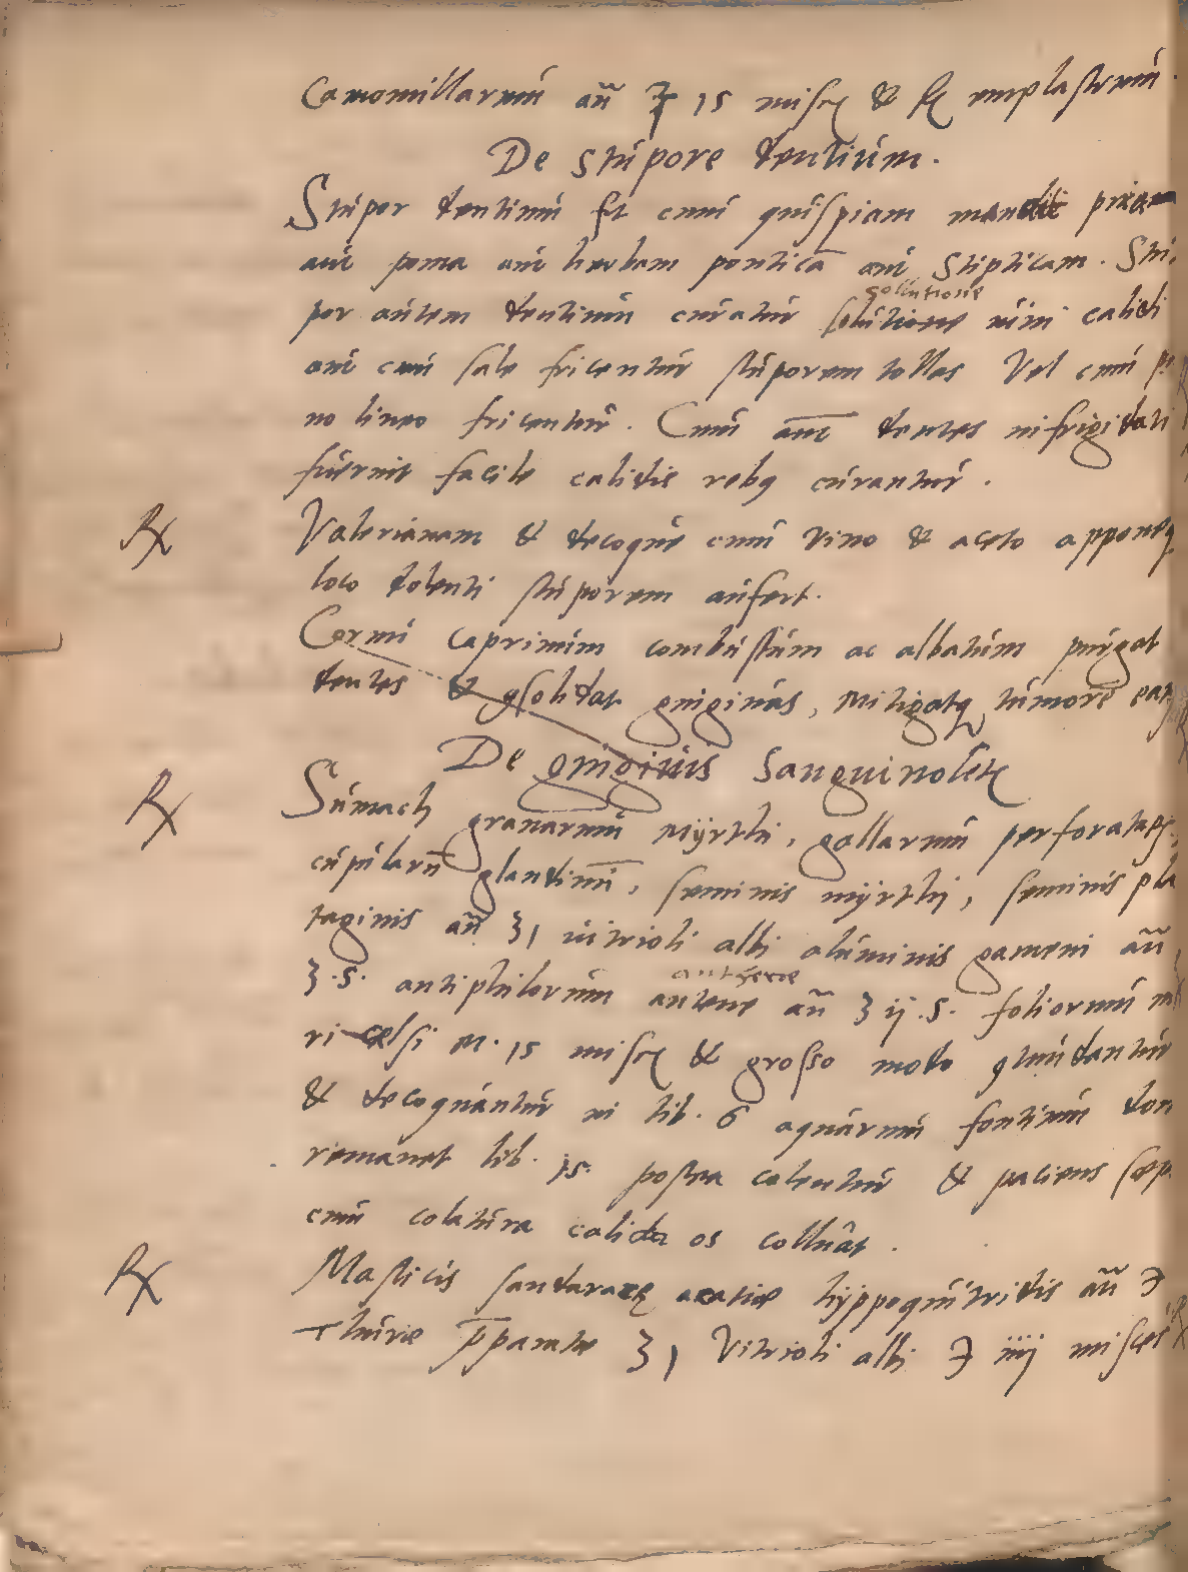 Camomillarum añ ℥ 1 s misce & fc emplastrum.
De stupore dentium.
Stupor dentium fit cum quispiam
aut poma aut herbam ponticā aut stipticam. Stu,
sollutione
por autem dentium curatur solutione uini calidi
aut cum sale fricentur stuporem tollas Vel cum
no lineo fricentur. Cum aut̄ dentes infrigidati
fuerint facile calidis rebꝯ curantur.
℞ Valerianam & decoque cum vino & aceto apponeqꝫ
loco dolenti stuporem aufert.
Cornu caprinum combustum ac albatum purgat
dentes & ꝯsolidat gingiuas, mitigatqꝫ tumorē
De gingiuis Sanguinolētis
℞ Sumach granarum Myrthi, gallarum perforatarꝫ
cupularū glandium, seminis myrthi, seminis pla
taginis añ ʒ 1 uitrioli albi aluminis gameni añ
ʒ.s. antiphilorum
antherae
anterae añ ʒ ij.s. foliorum m
ri celsi M. 1 s misce & grosso modo ꝯtundantur
& decoquantur in lib. 6 aquarum fontium don
remanet lib. 1 s. postea colentur & patiens sæp
cum colatura calida os colluat.
℞ Masticis sandaracæ acatiæ hyppoquitridis añ ℈
Thuris p̄paratae ʒ 1 Vitrioli albi ℈ iiij